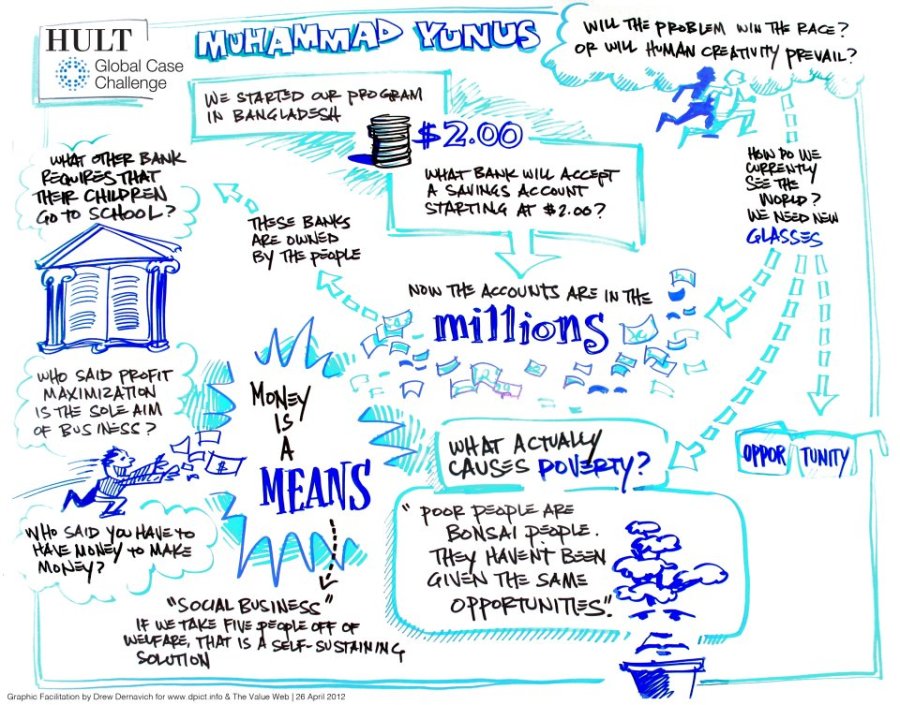 HULT
Global Case
Challenge
MUHAMMAD YUNUS
WILL THE PROBLEM WIN THE RACE?
OR WILL HUMAN CREATIVITY PREVAIL?
WE STARTED OUR PROGRAM
IN BANGLADESH
$2.00
WHAT BANK WILL ACCEPT
A SAVINGS ACCOUNT
STARTING AT $2.00?
HOW DO WE
CURRENTLY
SEE THE
WORLD?
WE NEED NEW
GLASSES
WHAT OTHER BANK
REQUIRES THAT
THEIR CHILDREN
GO TO SCHOOL?
THESE BANKS
ARE OWNED
BY THE PEOPLE
NOW THE ACCOUNTS ARE IN THE
millions
WHO SAID PROFIT
MAXIMIZATION
IS THE SOLE AIM
OF BUSINESS?
MONEY
IS
A
MEANS
$
WHAT ACTUALLY
CAUSES POVERTY?
OPPOR TUNITY
WHO SAID YOU HAVE TO
HAVE MONEY TO MAKE
MONEY?
"POOR PEOPLE ARE
BONSAI PEOPLE.
THEY HAVEN'T BEEN
GIVEN THE SAME
OPPORTUNITIES".
"SOCIAL BUSINESS"
IF WE TAKE FIVE PEOPLE OFF OF
WELFARE, THAT IS A SELF-SUSTAINING
SOLUTION
Graphic Facilitation by Drew Dernavich for www.dpict.info & The Value Web | 26 April 2012